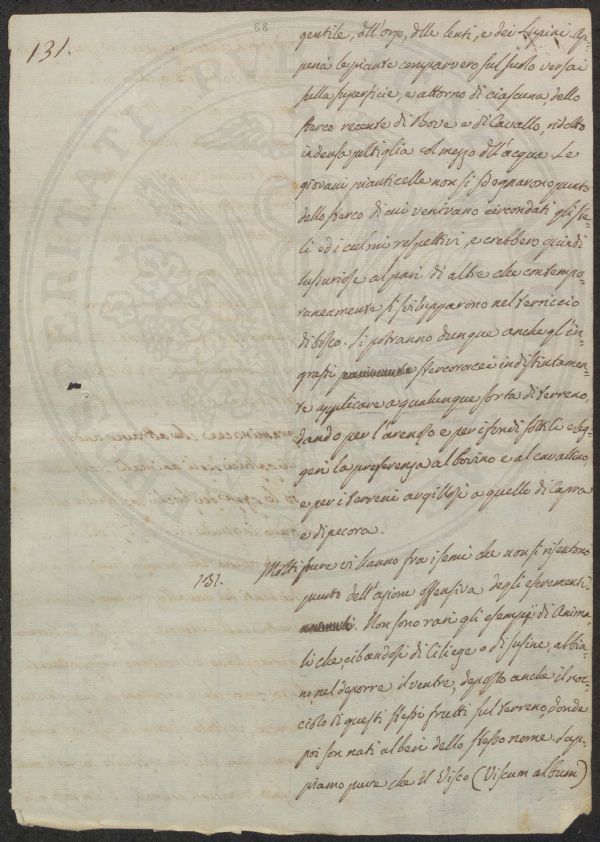 131.
gentile, dell'orzo, delle lenti, e dei Lupini. Ap-
pena le piante comparvero sul suolo versai
sulla superficie, e attorno di ciascuna, dello
sterco recente di Bove e di Cavallo, ridotto
in densa poltiglia col mezzo dell'acqua. Le
giovani pianticelle non si sdegnarono punto
dello sterco di cui venivano circondati gli ste-
li ed i culmi respettivi, e crebbero quindi
lussuriose al pari di altre che contempo-
raneamente si svilupparono nel terriccio
di bosco. Si potranno dunque anche gl'in-
grassi stercoracei indistintamen-
te applicare a qualunque sorta di terreno,
dando per l'arenoso e per i fondi sottili e leg-
geri la preferenza al bovino e al cavallino,
e per i terreni argillosi a quello di Capra
e di pecora.
131. Molti pure vi hanno fra i semi che non si risentono
punto dell'azione offensiva degli escrementi
. Non sono rari gli esempj di Anima-
li che, cibandosi di Ciliege o di susine, abbia-
no, nel deporre il ventre, deposto anche il noc-
ciolo di questi stessi frutti sul terreno, donde
poi son nati alberi dello stesso nome. Sap-
piamo pure che il Visco (Viscum album)